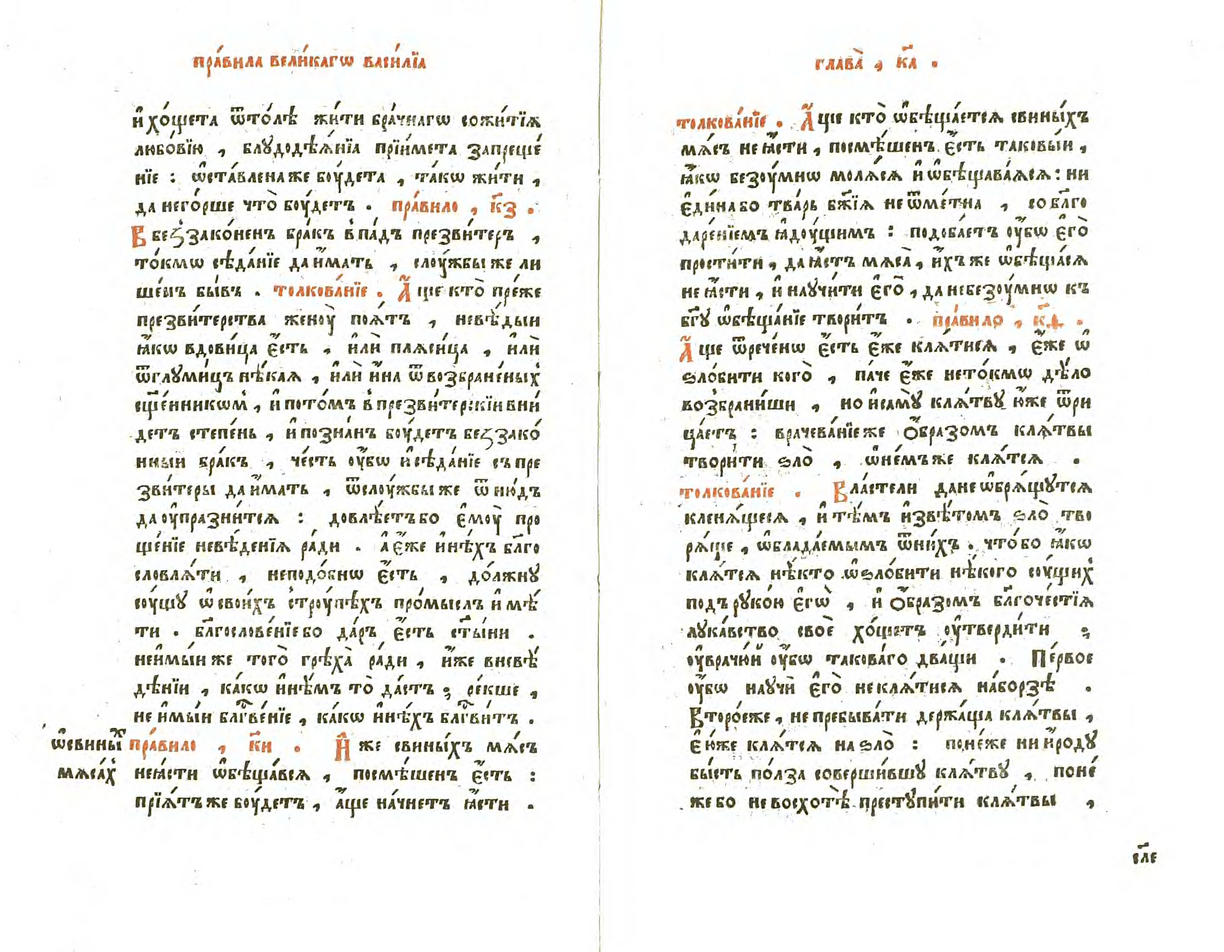 пра́вила вели́кагѡ васи́лїа
и҆ хо́щета ѿто́лѣ жи́ти бра́чнагѡ сожи́тїѧ
любо́вїю , блуdодѣѧ́нїѧ прїи́мета запреще́
нїе : ѡ҆ста́влена же бꙋ́дета , та́кѡ жи́ти ,
да него́рше что̀ бꙋ́детъ . пра́вило , к҃з .
В беꙁзако́ненъ бра́къ впа́дъ презви́теръ ,
то́кмѡ сѣда́нїе да и҆́мать , слꙋ́жбы же ли
ше́нъ бы́въ . толкова́нїе . А҆́ще кто̀ пре́же
презви́терства женꙋ̀ поѧ́тъ , невѣ́дыи
ꙗ҆́кѡ вдови́ца є҆́сть , и҆лѝ плѧса́ица , и҆лѝ
ѿглꙋми́цъ нѣ́каѧ , и҆лѝ и҆́на ѿ возбране́ныхъ
сщ҃е́нникомъ , и҆ пото́мъ в презви́терскїи вни́
детъ степе́нь , и҆ позна́нъ бꙋ́детъ беꙁзако́
нныи бра́къ , че́сть ᲂу҆́бѡ и҆ сѣда́нїе съ пре
зви́теры да и҆́мать , ѿ слꙋ́жбы же ѿню́дъ
да ᲂу҆праздни́тсѧ : довлѣ́етъ бо є҆мꙋ̀ про
ще́нїе невѣ́денїѧ ра́ди . а҆ є҆́же и҆нѣ́хъ бл҃го
словлѧ́ти , неподо́бнѡ є҆́сть , до́лжнꙋ
сꙋ́щꙋ ѡ҆ свои́хъ стрꙋ́пѣхъ про́мыслъ и҆мѣ́
ти . бл҃гослове́нїе бо да́ръ є҆́сть ст҃ы́ни .
неимы́и же того̀ грѣха̀ ра́ди , и҆́же в невѣ́
дѣнїи , ка́кѡ и҆нѣ́мъ то̀ да́стъ ; ре́кше ,
не и҆мы́и бл҃гве́нїе , ка́кѡ и҆нѣ́хъ бл҃гви́тъ .
ѡ҆ свины́хъ
мѧса́хъ
пра́вило , к҃и . И҆́же свины́хъ мѧ́съ
неꙗ҆́сти ѡ҆бѣща́всѧ , посмѣ́шенъ є҆́сть :
прїѧ́тъ же бꙋ́детъ , а҆́ще на́чнетъ ꙗ҆́сти .
глава̀ , к҃а .
толкова́нїе . А҆́ще кто̀ ѡ҆бѣща́етсѧ свины́хъ
мѧ́съ не ꙗ҆́сти , посмѣ́шенъ є҆́сть таковы́и ,
ꙗ҆́кѡ безꙋ́мнѡ молѧ́сѧ и҆ ѡ҆бѣщава́ѧсѧ : ни
є҆ди́на бо тва́рь бж҃їѧ не ѿме́тна , со бл҃го
даре́нїемъ ꙗ҆дꙋ́щимъ : подоба́етъ ᲂу҆́бѡ є҆го̀
прости́ти , да ꙗ҆́стъ мѧса̀ , и҆́хъ же ѡ҆бѣща́сѧ
не ꙗ҆́сти , и҆ наꙋчи́ти є҆го̀ , да небезꙋ́мнѡ къ
бг҃ꙋ ѡ҆бѣща́нїе твори́тъ . пра́вило , к҃ѳ .
А҆́ще ѿрече́нѡ є҆́сть є҆́же клѧ́тисѧ , є҆́же ѡ҆
ѕло́бити кого̀ , па́че є҆́же нето́кмѡ дѣ́ло
возбрани́ши , но и҆ са́мꙋ клѧ́твꙋ ю҆́же ѿри
ца́етъ : врачева́нїе же ѻ҆́бразомъ клѧ́твы
твори́ти ѕло̀ , ѡ҆ не́мъ же клѧ́тсѧ .
толкова́нїе . Вла́стели да не ѡ҆брѧ́щꙋтсѧ
кленѧ́щесѧ , и҆ тѣ́мъ и҆звѣ́томъ ѕло̀ тво
рѧ́ще , ѡ҆блада́емымъ ѿ ни́хъ . что́ бо ꙗ҆́кѡ
клѧ́тсѧ нѣ́кто ѡ҆ѕло́бити нѣ́кого сꙋ́щихъ
подъ рꙋко́ю є҆гѡ̀ , и҆ ѻ҆́бразомъ бл҃гоче́стїѧ
лꙋка́вство своѐ хо́щетъ ᲂу҆тверди́ти ;
ᲂу҆врачꙋ́й ᲂу҆́бѡ такова́го два́щи . Пе́рвое
ᲂу҆́бѡ наꙋчѝ є҆го̀ не клѧ́тисѧ на́борзѣ .
Второ́е же , не пребыва́ти держа́ща клѧ́твы ,
є҆́юже клѧ́тсѧ на ѕло̀ : поне́же ни и҆́родꙋ
бы́сть по́лза соверши́вшꙋ клѧ́твꙋ , поне́
же бо не восхотѣ̀ престꙋпи́ти клѧ́твы ,
с҃ле